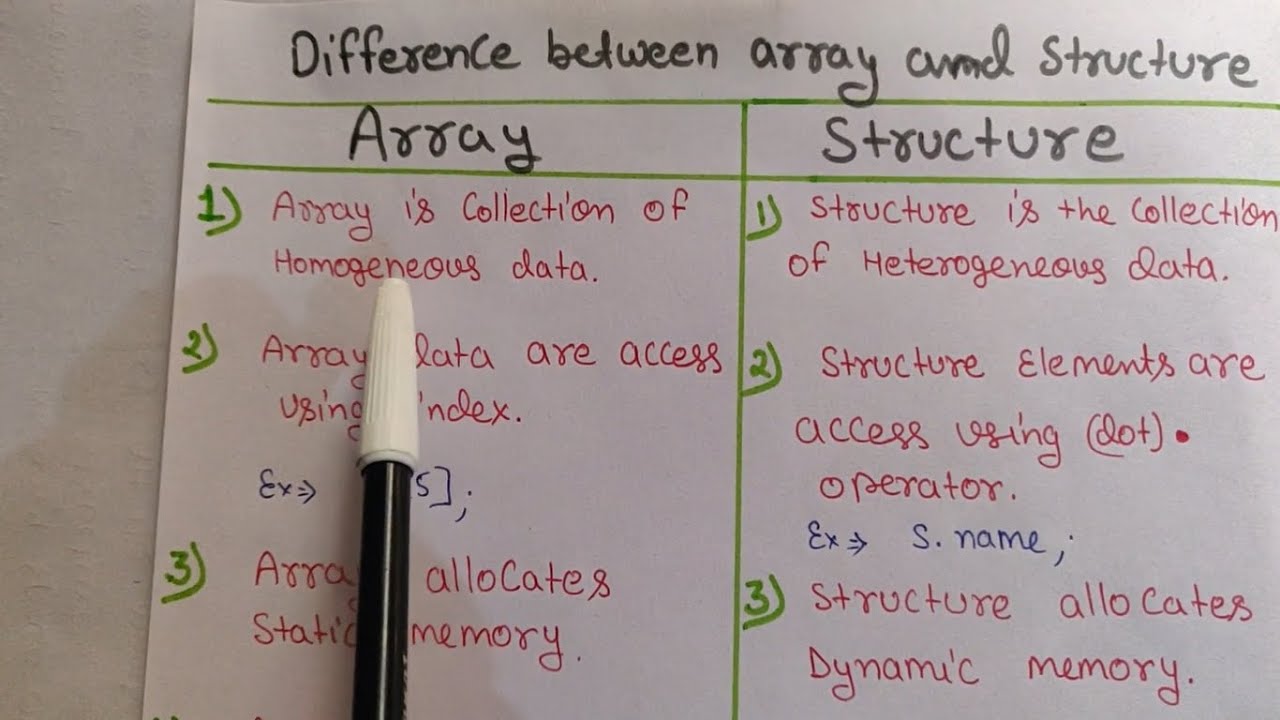 Difference between array and Structure
Array
Structure
1) Array is Collection of
Homogeneous data.
2) Array data are access
using index.
Ex⇒ 5];
3) Array allocates
Static memory.
1) Structure is the Collection
of Heterogeneous data.
2) Structure Elements are
access using (dot) •
operator.
Ex⇒ S.name;
3) Structure allocates
Dynamic memory.